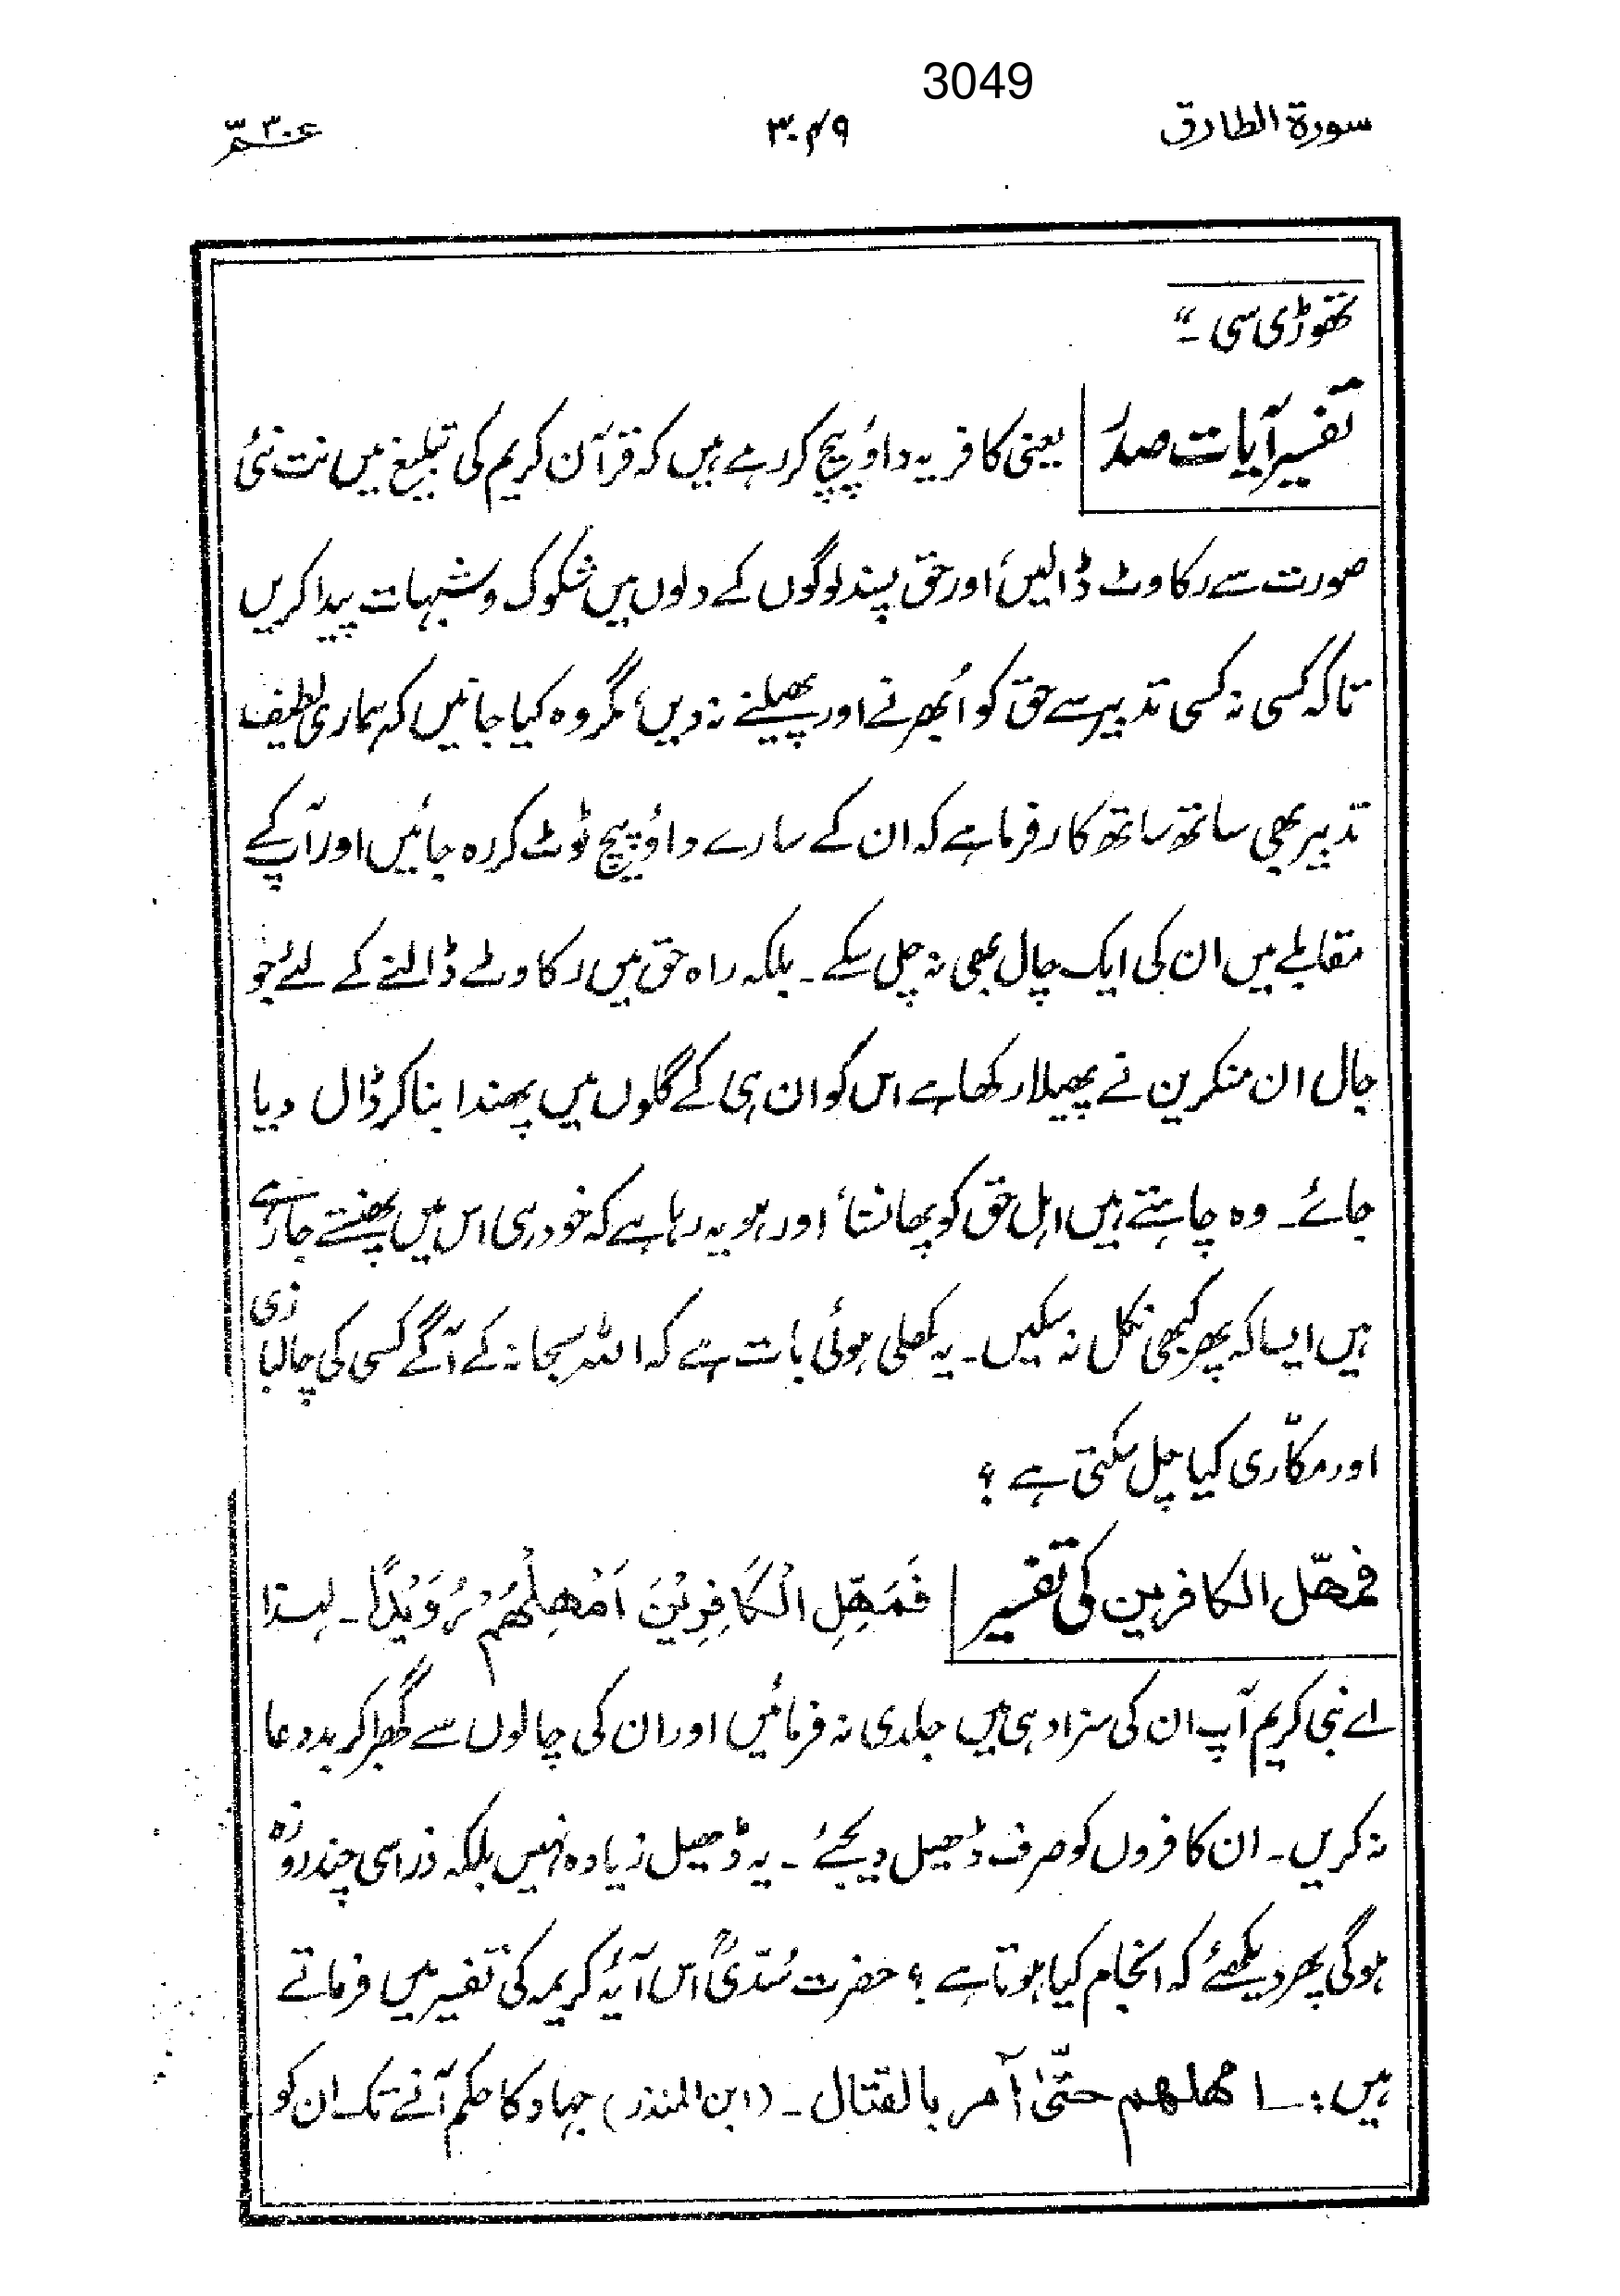 3049
سورۃ الطارق ۳۰۴۹ عمّ ۳۰
تھوڑی سی۔“
تفسیر آیات صدر یعنی کافر یہ داؤ پیچ کر رہے ہیں کہ قرآن کریم کی تبلیغ میں نت نئی
صورت سے رکاوٹ ڈالیں، اور حق پسند لوگوں کے دلوں میں شکوک و شبہات پیدا کریں
تاکہ کسی نہ کسی تدبیر سے حق کو اُبھرنے اور پھیلنے نہ دیں، مگر وہ کیا جانیں کہ ہماری لطیف
تدبیر بھی ساتھ ساتھ کارفرما ہے کہ ان کے سارے داؤ پیچ ٹوٹ کر رہ جائیں اور آپ کے
مقابلے میں ان کی ایک چال بھی نہ چل سکے۔ بلکہ راہ حق میں رکاوٹ ڈالنے کے لئے جو
جال ان منکرین نے پھیلا رکھا ہے اس کو ان ہی کے گلوں میں پھندا بنا کر ڈال دیا
جائے۔ وہ چاہتے ہیں اہل حق کو پھانسنا، اور ہو یہ رہا ہے کہ خود ہی اس میں پھنستے جا رہے
ہیں ایسا کہ پھر کبھی نکل نہ سکیں۔ یہ کھلی ہوئی بات ہے کہ اللہ سبحانہ کے آگے کسی کی چالبازی
اور مکّاری کیا چل سکتی ہے؟
فمھّل الکافرین کی تفسیر فَمَهِّلِ الْكَافِرِيْنَ اَمْهِلْهُمْ رُوَيْدًا۔ لہٰذا
اے نبی کریم آپ ان کی سزا دہی میں جلدی نہ فرمائیں اور ان کی چالوں سے گھبرا کر بددعا
نہ کریں۔ ان کافروں کو صرف ڈھیل دیجئے۔ یہ ڈھیل زیادہ نہیں بلکہ ذرا سی چند روزہ
ہوگی پھر دیکھئے کہ انجام کیا ہوتا ہے؟ حضرت سُدّیؒ اس آیۂ کریمہ کی تفسیر میں فرماتے
ہیں:۔ امھلھم حتّیٰ آمر بالقتال۔ (ابن المنذر) جہاد کا حکم آنے تک ان کو